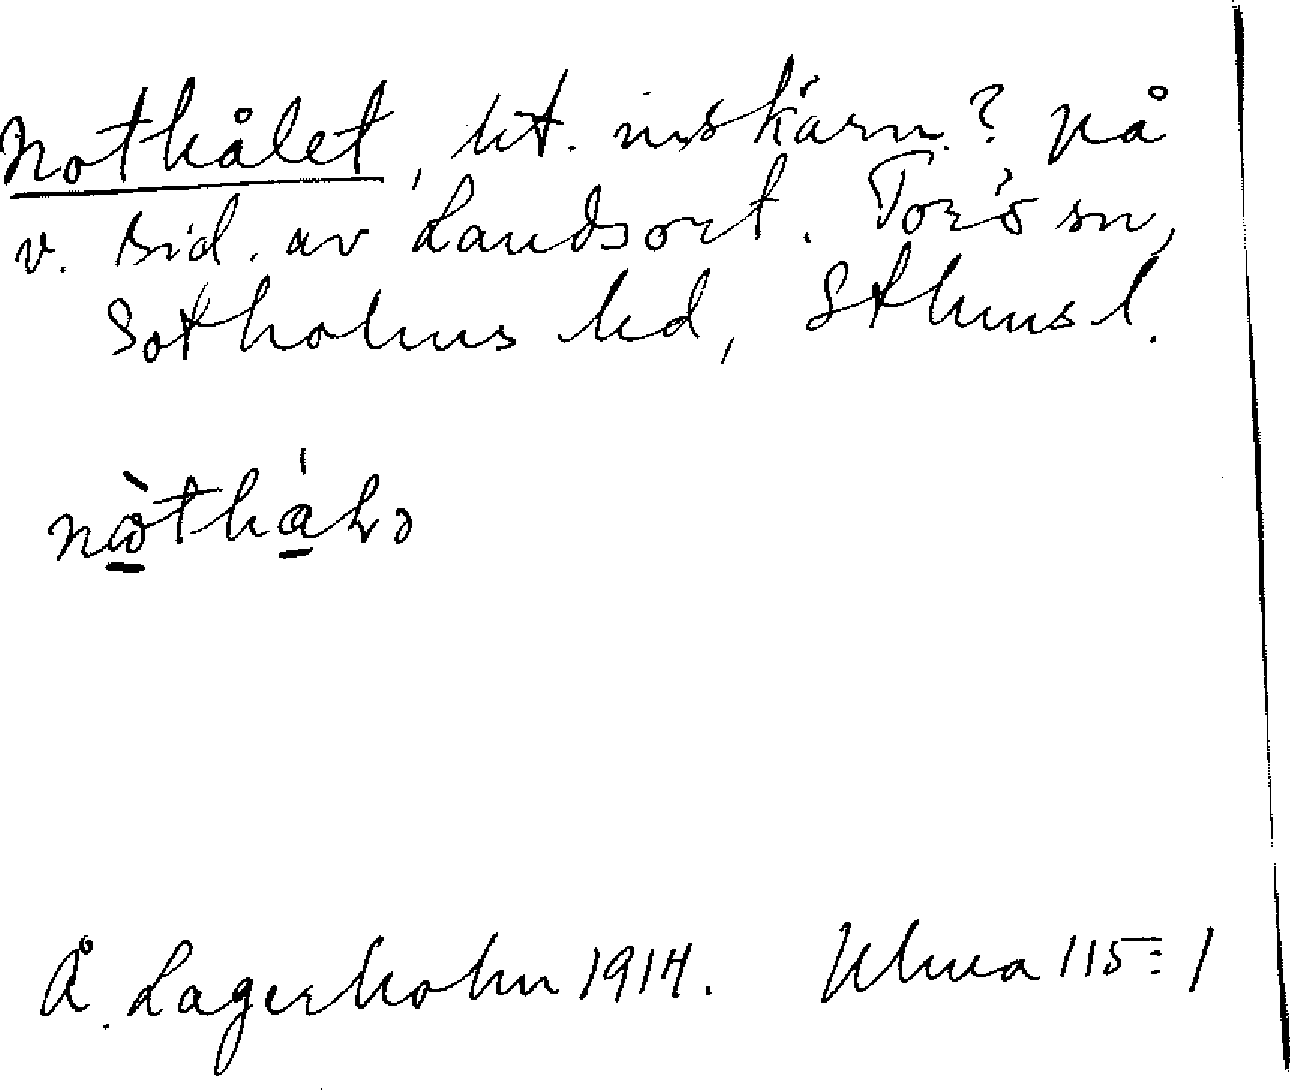 Nothålet, ht. inskärn.? på
v. sid. av Landsort. Torö sn,
Sotholms hd, Sthmsl.
Å. Lagerholm 1914. Ulma 115:1